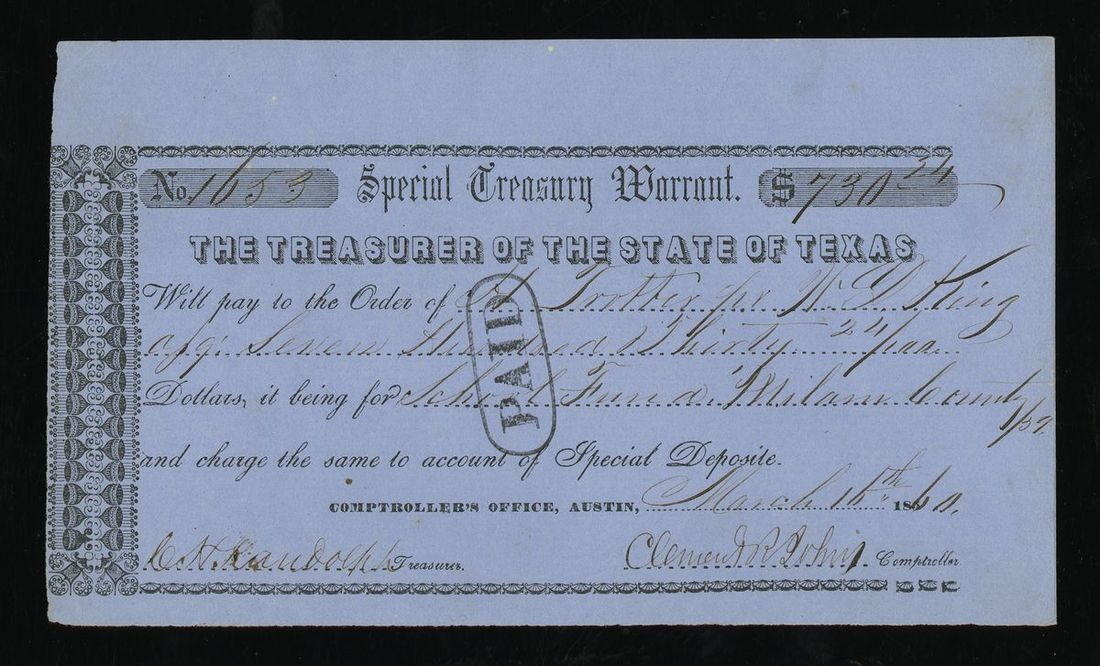 No. 1653 Special Treasury Warrant. $730 24
THE TREASURER OF THE STATE OF TEXAS
Will pay to the Order of Trotter per W D King
Seven Hundred & Thirty 24/100
Dollars, it being for School Fund, Milam County
/59
and charge the same to account of Special Deposite.
COMPTROLLER'S OFFICE, AUSTIN, March 15th 1860.
C H Randolph Treasurer. Clement R Johns Comptroller
PAID